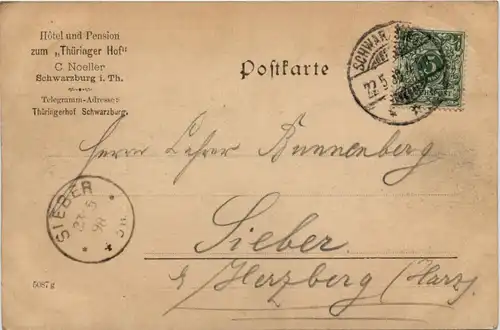 Hôtel und Pension
zum „Thüringer Hof“
C. Noeller
Schwarzburg i. Th.
Telegramm-Adresse:
Thüringerhof Schwarzburg.
Postkarte
SCHWARZ
22.5.
5
Herrn Lehrer Bunnenberg
SIEBER
23 5
98
Sieber
Herzberg (Harz).
5087 g